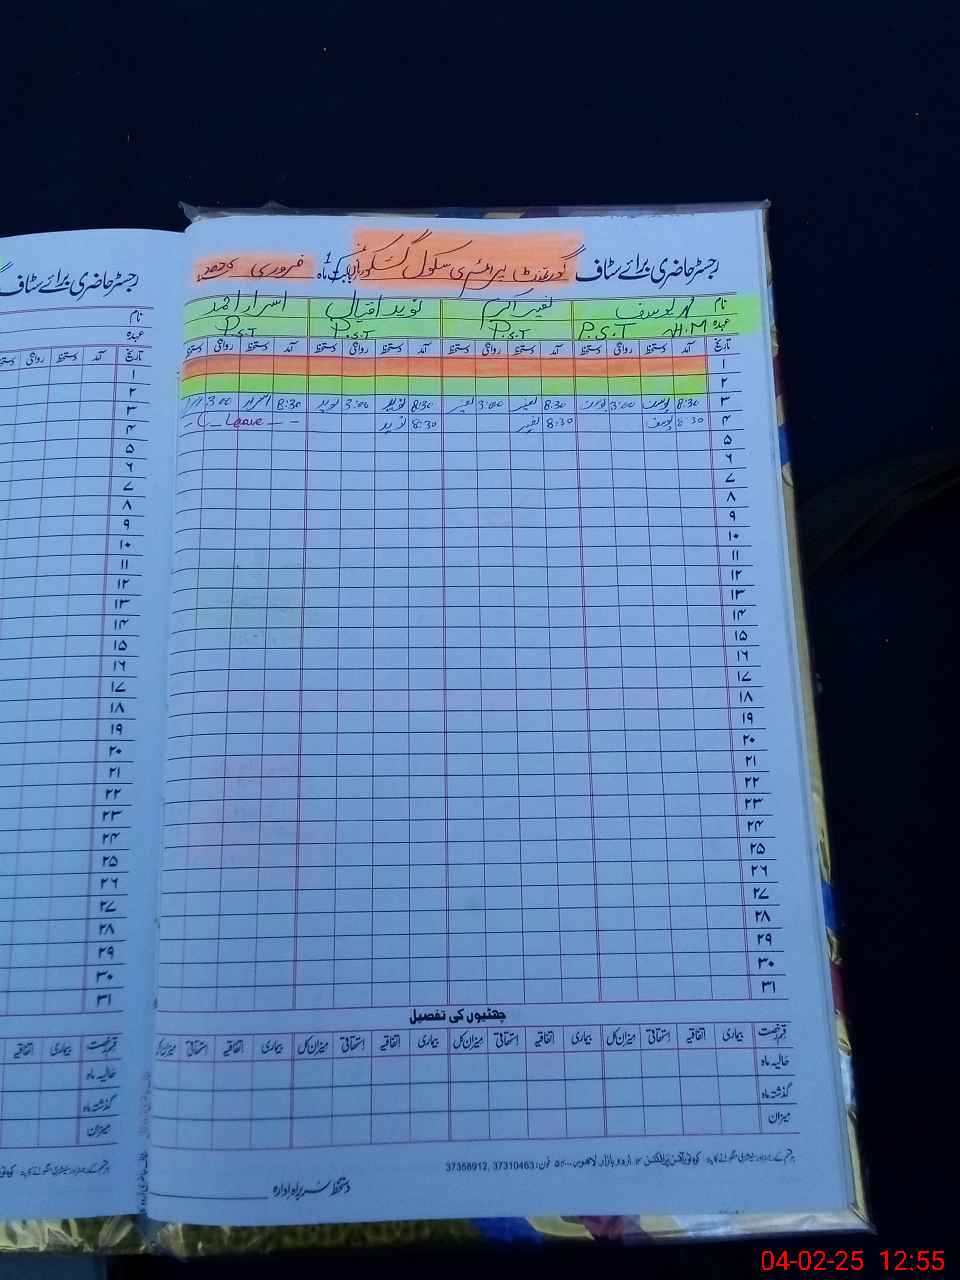 رجسٹر حاضری برائے سٹاف گورنمنٹ پرائمری سکول بابت ماہ فروری 2025
نام محمد یوسف نوید اقبال اسرار احمد
عہدہ H.M P.S.T P.S.T P.S.T P.S.T
تاریخ آمد دستخط روانگی دستخط آمد دستخط روانگی دستخط آمد دستخط روانگی دستخط آمد دستخط روانگی دستخط
۱
۲
۳ 8:30 یوسف 3:00 یوسف 8:30 3:00 8:30 نوید 3:00 نوید 8:30 اسرار 3:00
۴ 8:30 یوسف 8:30 8:30 نوید Leave
۵
۶
۷
۸
۹
۱۰
۱۱
۱۲
۱۳
۱۴
۱۵
۱۶
۱۷
۱۸
۱۹
۲۰
۲۱
۲۲
۲۳
۲۴
۲۵
۲۶
۲۷
۲۸
۲۹
۳۰
۳۱
چھٹیوں کی تفصیل
قسم رخصت بیماری اتفاقیہ استحقاقی میزان کل بیماری اتفاقیہ استحقاقی میزان کل بیماری اتفاقیہ استحقاقی میزان کل بیماری اتفاقیہ استحقاقی میزان کل
حالیہ ماہ
گذشتہ ماہ
میزان
اردو بازار لاہور فون: 37310463, 37358912
دستخط سربراہ ادارہ
رجسٹر حاضری برائے سٹاف
نام
عہدہ
تاریخ آمد دستخط روانگی دستخط
۱
۲
۳
۴
۵
۶
۷
۸
۹
۱۰
۱۱
۱۲
۱۳
۱۴
۱۵
۱۶
۱۷
۱۸
۱۹
۲۰
۲۱
۲۲
۲۳
۲۴
۲۵
۲۶
۲۷
۲۸
۲۹
۳۰
۳۱
قسم رخصت بیماری اتفاقیہ
حالیہ ماہ
گذشتہ ماہ
میزان
04-02-25 12:55